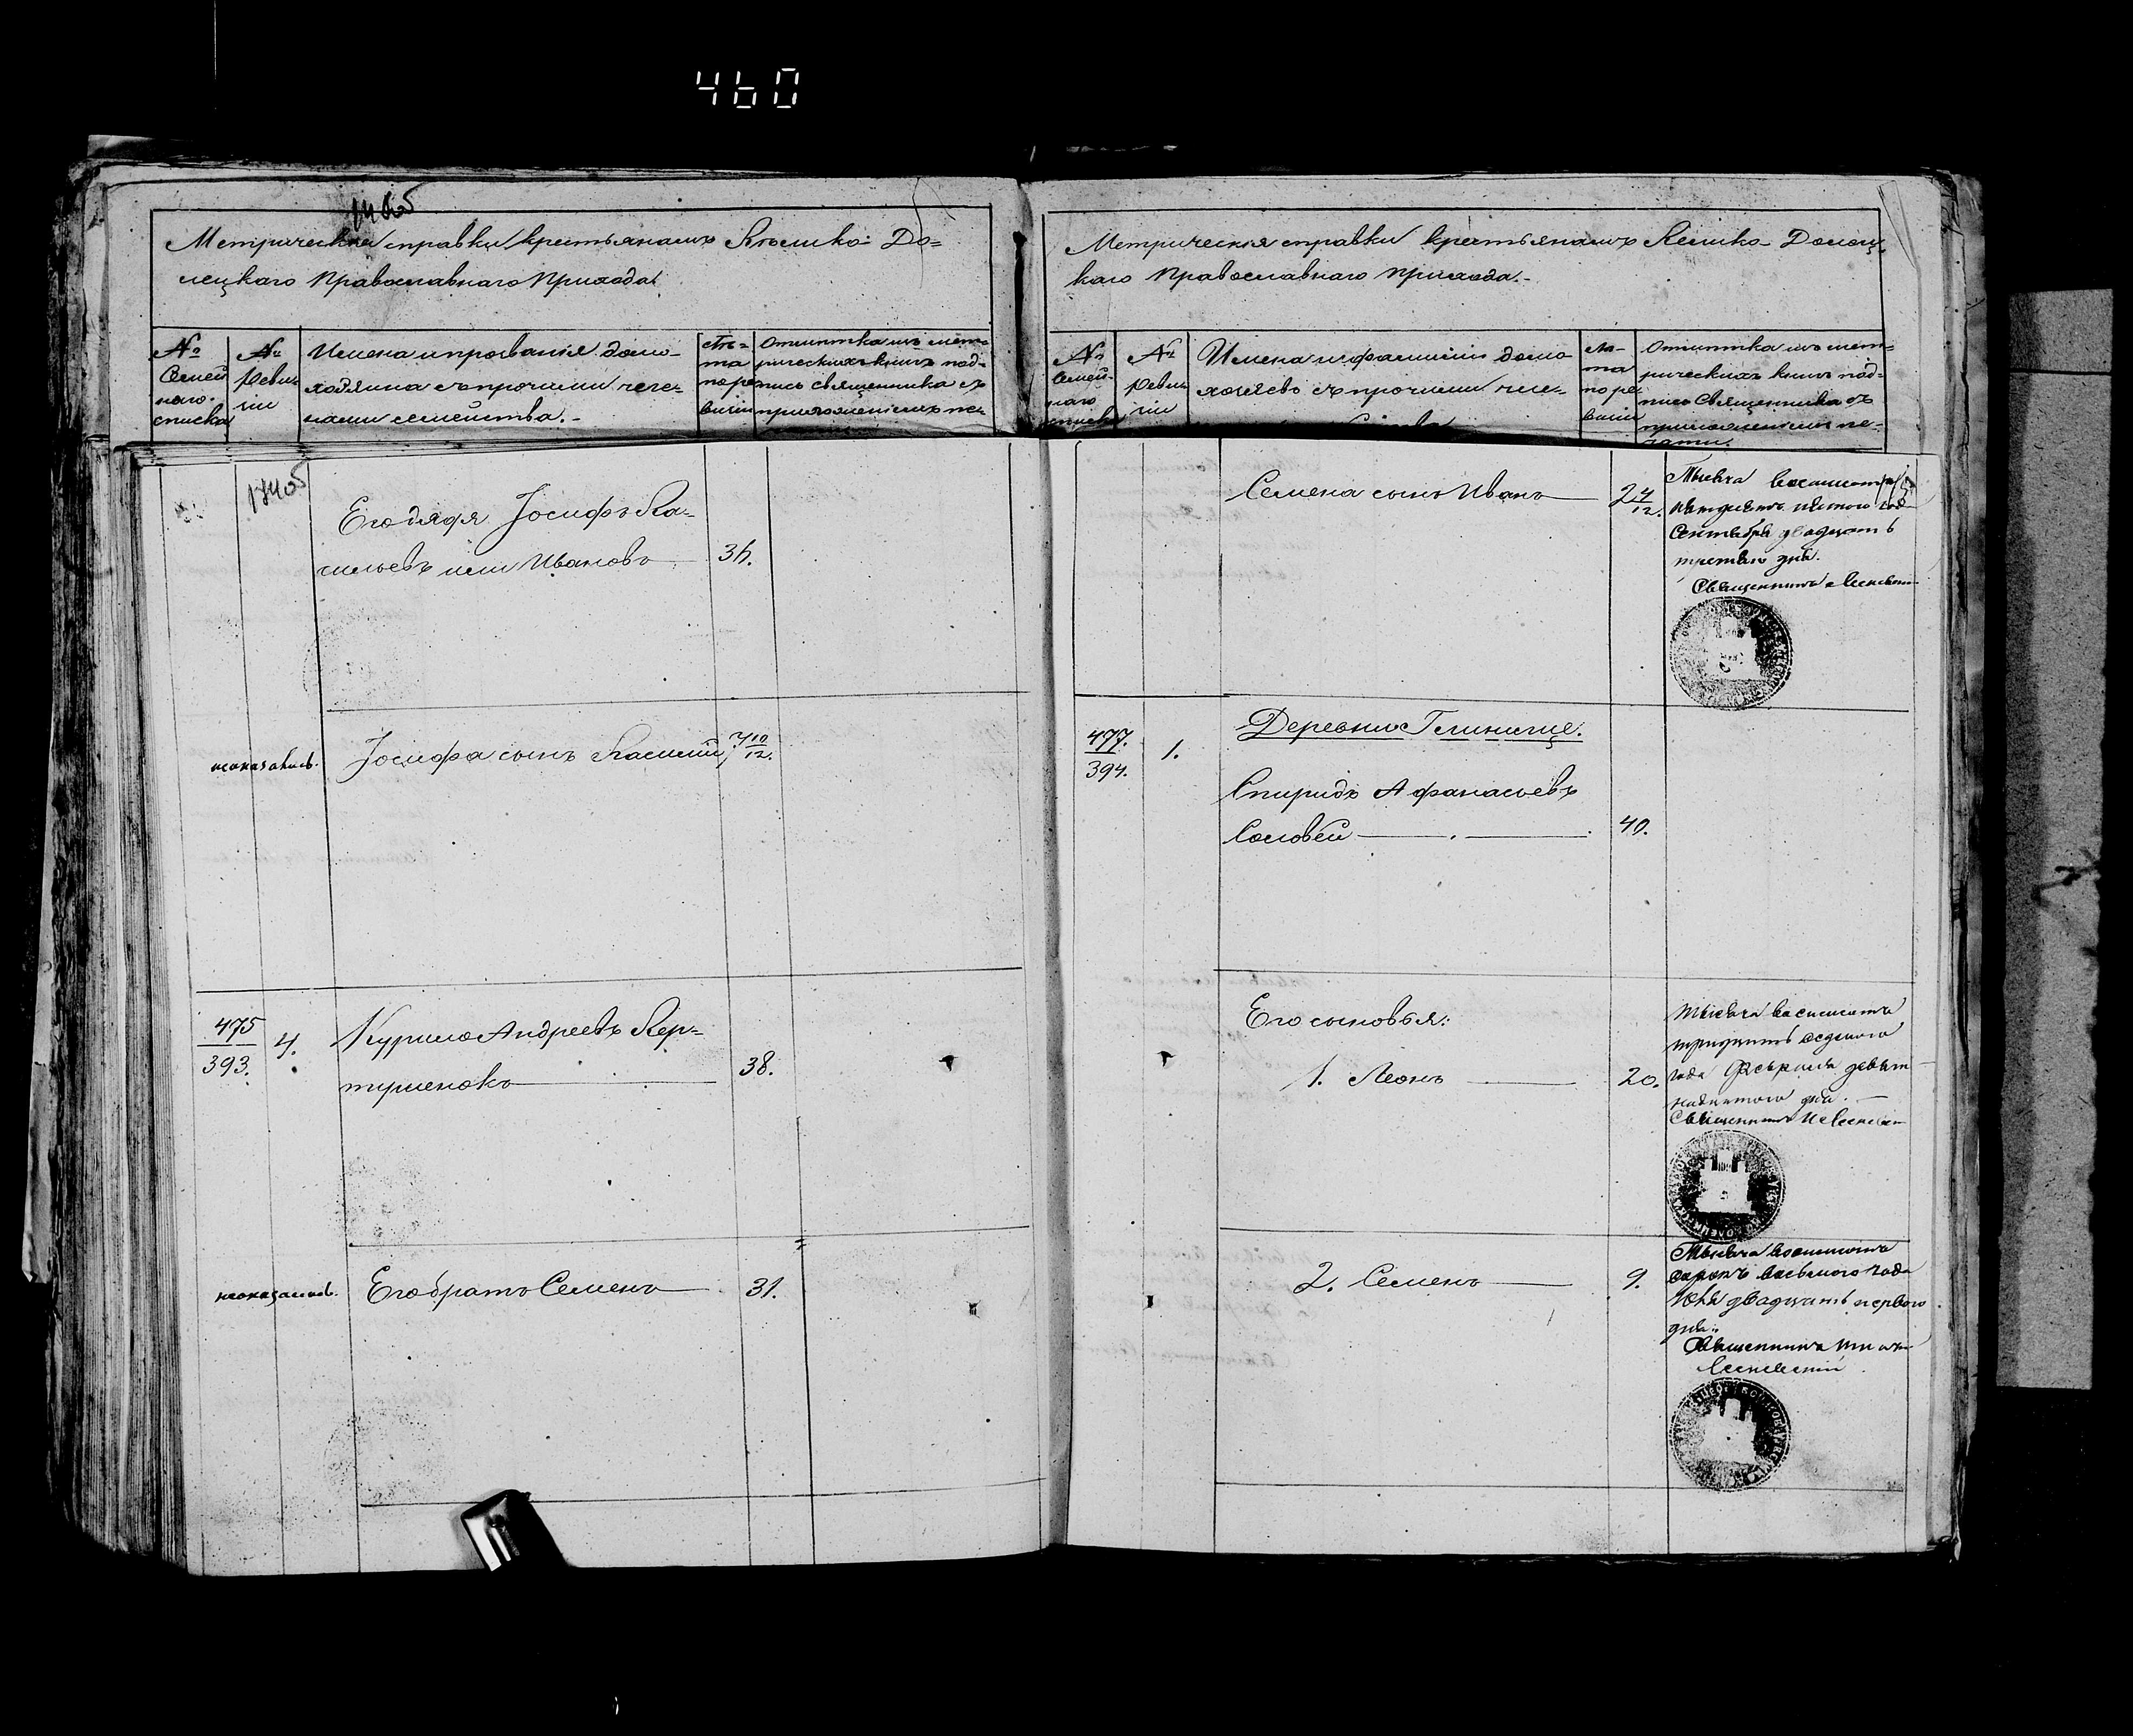 460
Метрическія справки крестьянамъ Велико-До-
лецкаго Православнаго Прихода.
№
Семей
наго
списка
№
Реви-
зіи
Имена и прозванія домо-
хозяина съ прочими чле-
нами семейства.-
Лѣ-
та
по ре
визіи
Отмѣтка изъ мет-
рическихъ книгъ под-
пись священника съ
приложеніемъ пе-
140об
Его дядя Іосифъ Ва-
сильевъ или Ивановъ 36.
не оказалось. Іосифа сынъ Василій, 7 10/12.
475
393. 4. Курило Андреевъ Вер-
тушенокъ 38.
не оказалось. Его братъ Семенъ 31.
Метрическія справки крестьянамъ Велико-Долец-
каго Православнаго прихода.-
№
Семей-
наго
списка
№
Реви-
зіи
Имена и фамиліи домо
хозяевъ съ прочими чле-
Лѣ-
та
по ре
визіи
Отмѣтка изъ мет-
рическихъ книгъ под-
пись Священника съ
приложеніемъ пе-
чати.
Семена сынъ Иванъ 2 4/12.
Тысяча восемьсотъ
пятьдесятъ пятого год
Сентября двадцать
третьяго дня.
Священникъ
477.
394. 1. Деревни Глинище.
Спиридъ Афанасьевъ
Соловей 40.
Его сыновья:
1. Леонъ 20.
тысяча восемьсотъ
тридцать седьмого
года Февраля девят-
надцатого дня.
Священникъ
2. Семенъ 9.
Тысяча восемьсотъ
сорокъ восьмого года
Юня двадцать первого
дня.
Священникъ